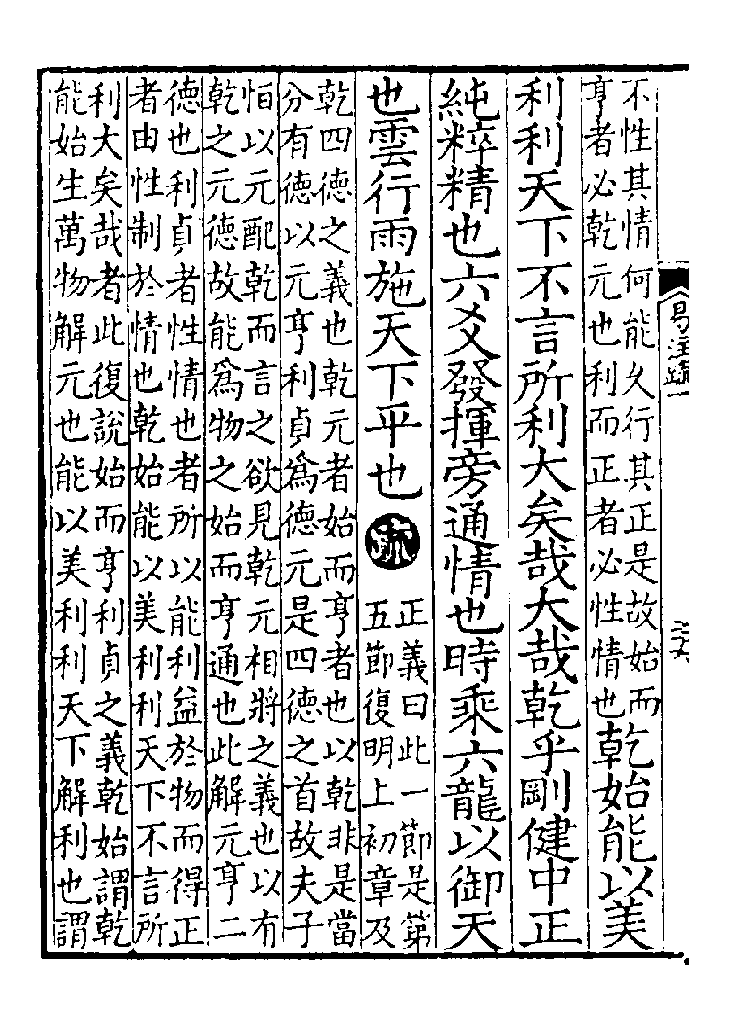 不性其情何能久行其正是故始而
亨者必乾元也利而正者必性情也
乾始能以美
利利天下不言所利大矣哉大哉乾乎剛健中正
純粹精也六爻發揮旁通情也時乘六龍以御天
也雲行雨施天下平也疏
正義曰此一節是第
五節復明上初章及
乾四德之義也乾元者始而亨者也以乾非是當
分有德以元亨利貞爲德元是四德之首故夫子
恒以元配乾而言之欲見乾元相將之義也以有
乾之元德故能爲物之始而亨通也此解元亨二
德也利貞者性情也者所以能利益於物而得正
者由性制於情也乾始能以美利利天下不言所
利大矣哉者此復說始而亨利貞之義乾始謂乾
能始生萬物解元也能以美利利天下解利也謂
易注疏一